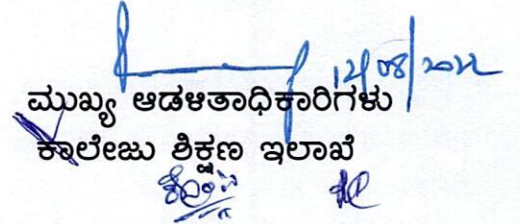 12/08/2022
ಮುಖ್ಯ ಆಡಳಿತಾಧಿಕಾರಿಗಳು
ಕಾಲೇಜು ಶಿಕ್ಷಣ ಇಲಾಖೆ